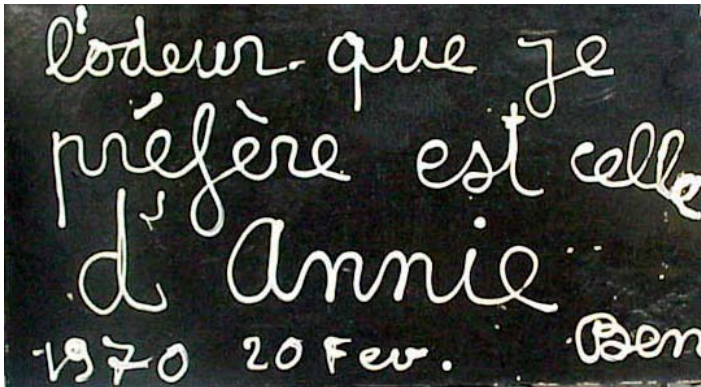 l'odeur que je
préfère est celle
d'Annie
1970 20 Fev. Ben